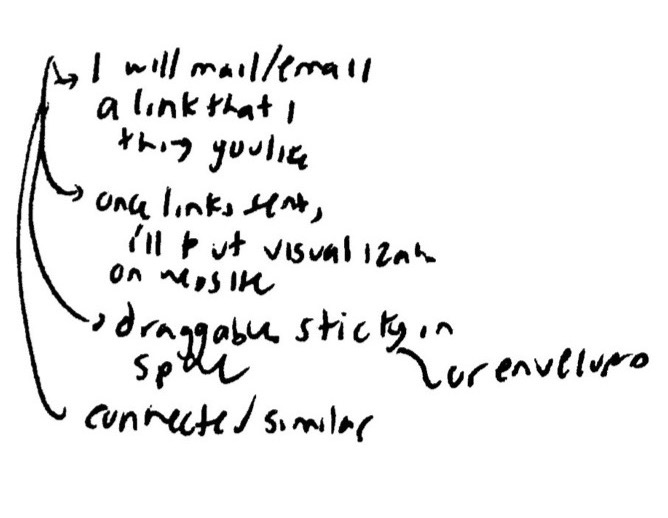 I will mail/email
a link that I
think you like
once links sent,
i'll put visualizah
on website
draggable sticky in
space
or envelope
connected/similar